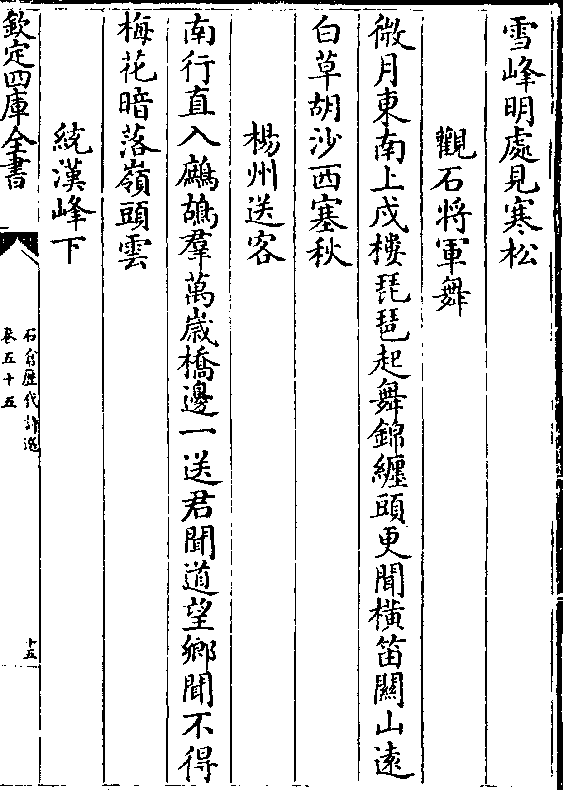 雪峰明處見寒松
觀石將軍舞
微月東南上戍樓琵琶起舞錦纏頭更聞橫笛關山遠
白草胡沙西塞秋
楊州送客
南行直入鷓鴣羣萬歲橋邊一送君聞道望鄉聞不得
梅花暗落嶺頭雲
統漢峰下
欽定四庫全書
石倉歷代詩選
卷五十五
十五